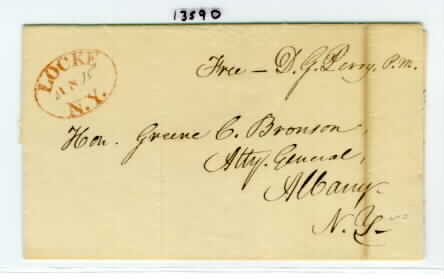 13590
LOCKE
N.Y.
Free — D. G. Perry. P.M.
Hon. Greene C. Bronson,
Atty. General,
Albany
N. Y.